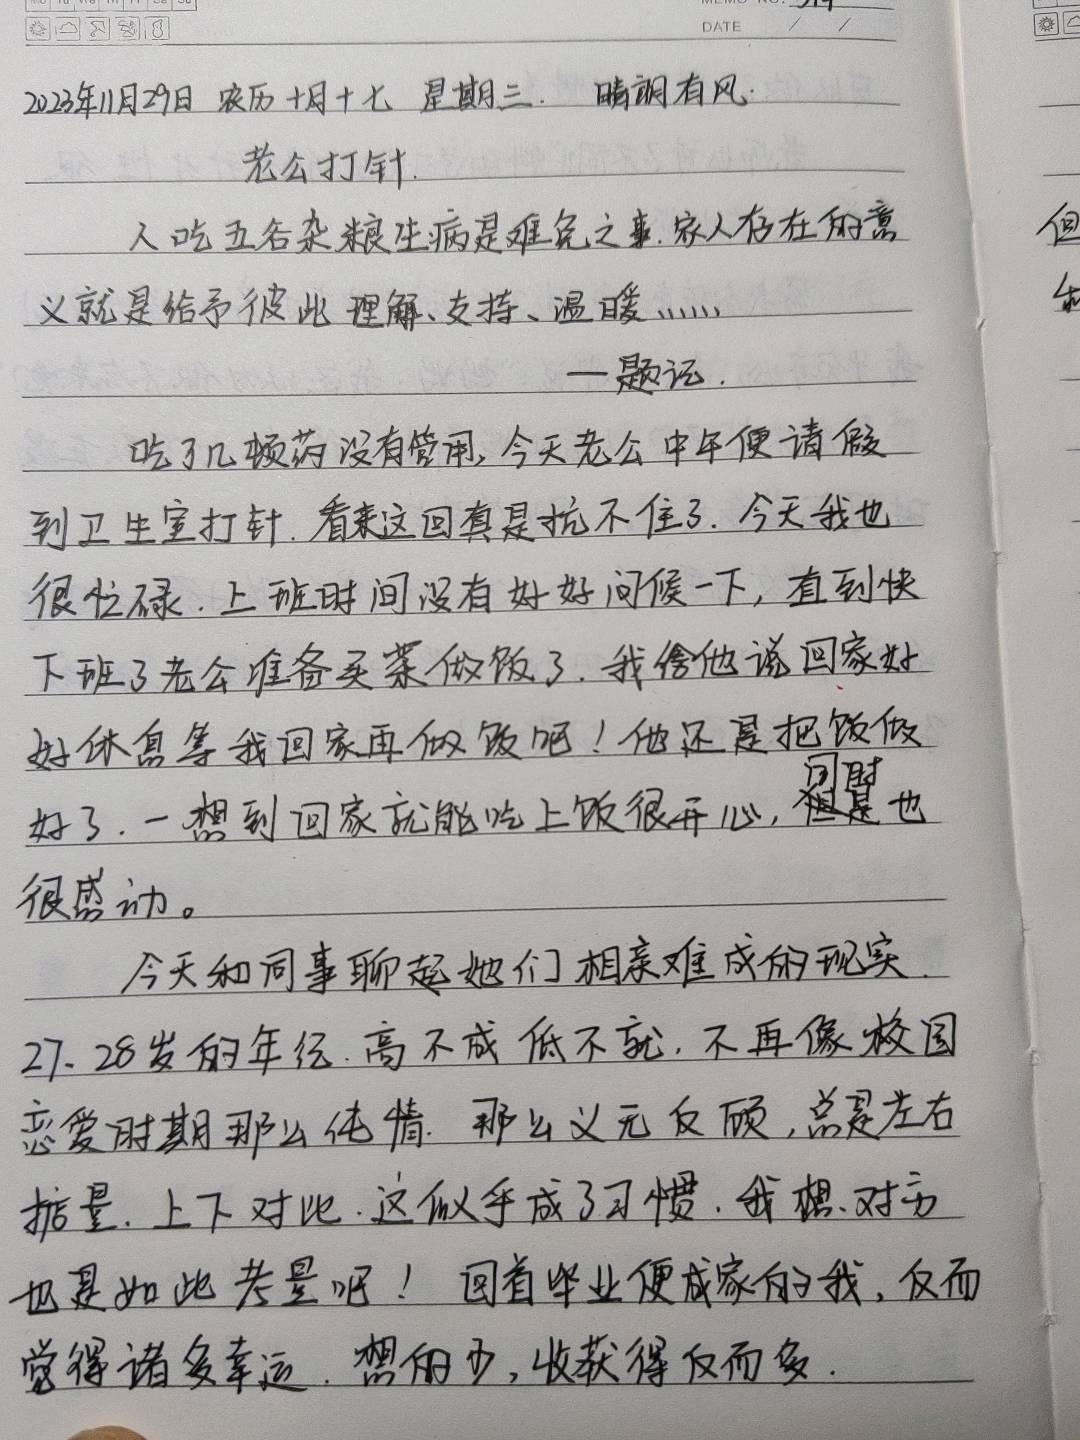 Mo Tu We Th Fr Sa Su
MEMO NO.
DATE / /
2023年11月29日 农历十月十七 星期三. 晴朗有风.
老公打针.
人吃五谷杂粮生病是难免之事.家人存在的意
义就是给予彼此理解、支持、温暖、、、、、、
—题记.
吃了几顿药没有管用,今天老公中午便请假
到卫生室打针.看来这回真是抗不住了.今天我也
很忙碌.上班时间没有好好问候一下,直到快
下班了老公准备买菜做饭了.我给他说回家好
好休息等我回家再做饭吧!他还是把饭做
同时
好了.一想到回家就能吃上饭很开心,但是也
很感动。
今天和同事聊起她们相亲难成的现实.
27、28岁的年纪.高不成低不就.不再像校园
恋爱时期那么纯情.那么义无反顾,总是左右
掂量.上下对比.这似乎成了习惯.我想、对方
也是如此考量吧! 回首毕业便成家的我,反而
觉得诸多幸运.想的少,收获得反而多.
但